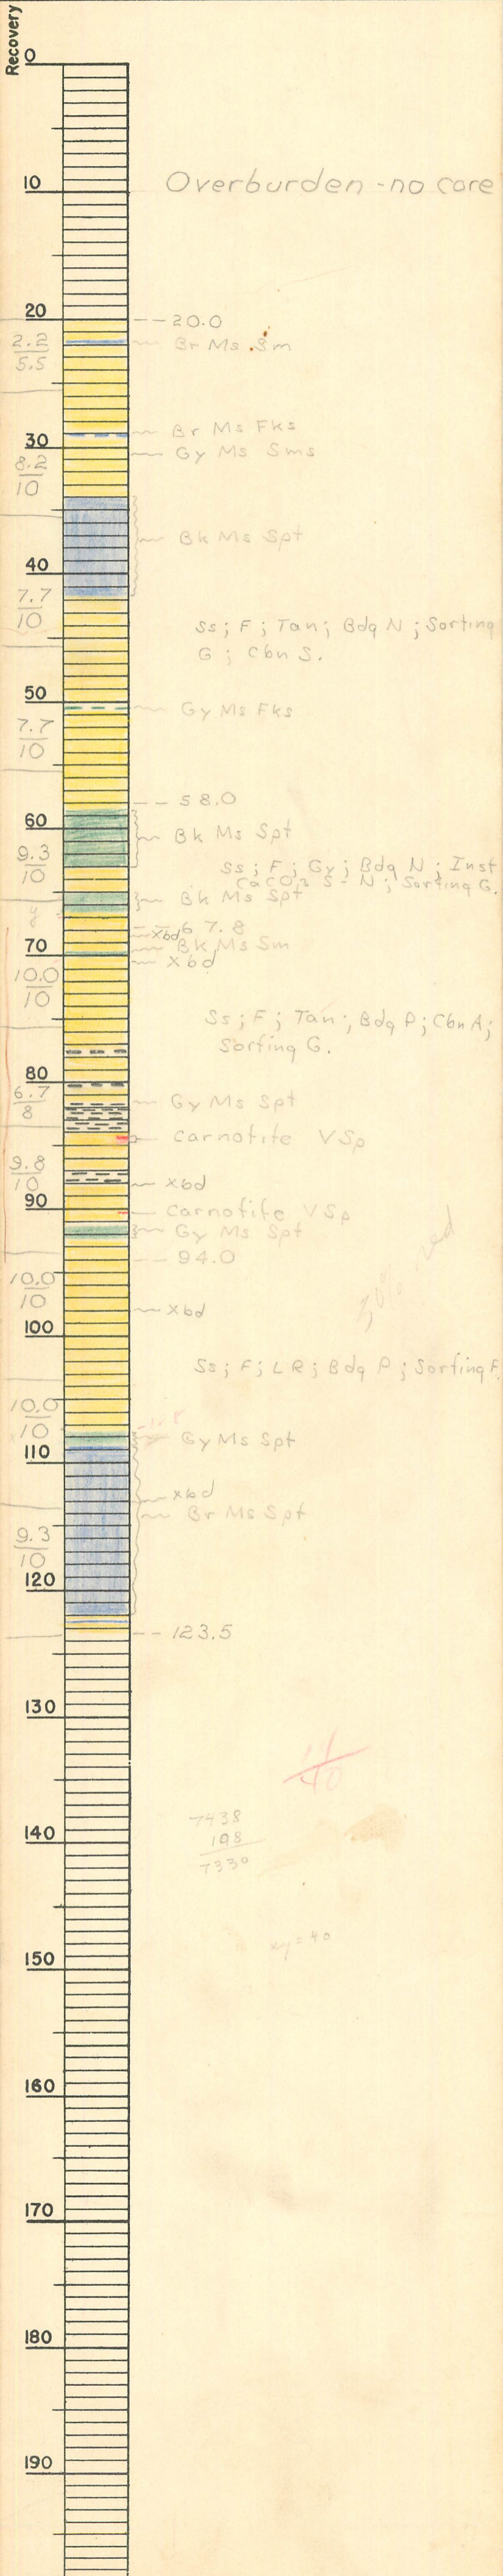 Recovery
0
10
Overburden - no core
20
-- 20.0
2.2
5.5
Br Ms Sm
Br Ms Fks
30
Gy Ms Sms
8.2
10
Bk Ms Spt
40
7.7
10
Ss; F; Tan; Bdg N; Sorting
G; Cbn S.
50
Gy Ms Fks
7.7
10
-- 58.0
60
Bk Ms Spt
9.3
10
Ss; F; Gy; Bdg N; Inst
CaCO3 S-N; Sorting G.
Bk Ms Spt
67.8
Xbd
Bk Ms Sm
70
Xbd
10.0
10
Ss; F; Tan; Bdg P; Cbn A;
Sorting G.
80
6.7
8
Gy Ms Spt
Carnotite VSp
9.8
10
Xbd
90
Carnotite VSp
Gy Ms Spt
-- 94.0
10.0
10
Xbd
100
Ss; F; LR; Bdg P; Sorting F.
10.0
10
Gy Ms Spt
110
xbd
Br Ms Spt
9.3
10
120
-- 123.5
130
11
40
7438
198
7330
140
150
xy = 40
160
170
180
190